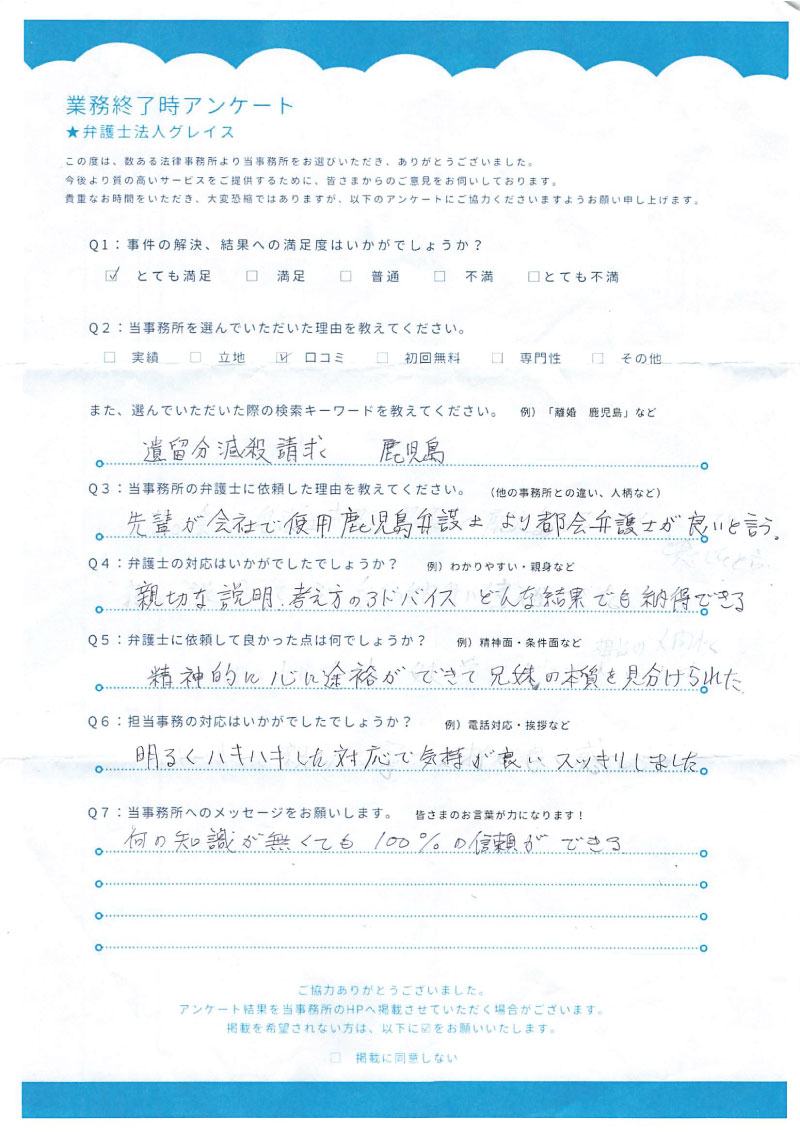 業務終了時アンケート
★弁護士法人グレイス
この度は、数ある法律事務所より当事務所をお選びいただき、ありがとうございました。
今後より質の高いサービスをご提供するために、皆さまからのご意見をお伺いしております。
貴重なお時間をいただき、大変恐縮ではありますが、以下のアンケートにご協力くださいますようお願い申し上げます。
Q1：事件の解決、結果への満足度はいかがでしょうか？
☑ とても満足 □ 満足 □ 普通 □ 不満 □とても不満
Q2：当事務所を選んでいただいた理由を教えてください。
□ 実績 □ 立地 ☑ 口コミ □ 初回無料 □ 専門性 □ その他
また、選んでいただいた際の検索キーワードを教えてください。 例）「離婚 鹿児島」など
遺留分減殺請求 鹿児島
Q3：当事務所の弁護士に依頼した理由を教えてください。 （他の事務所との違い、人柄など）
先輩が会社で使用鹿児島弁護士より都会弁護士が良いと言う。
Q4：弁護士の対応はいかがでしたでしょうか？ 例）わかりやすい・親身など
親切な説明、考え方のアドバイス どんな結果でも納得できる
Q5：弁護士に依頼して良かった点は何でしょうか？ 例）精神面・条件面など
精神的に心に途裕ができて兄妹の本質を見分けられた
Q6：担当事務の対応はいかがでしたでしょうか？ 例）電話対応・挨拶など
明るくハキハキした対応で気持が良い スッキリしました
Q7：当事務所へのメッセージをお願いします。 皆さまのお言葉が力になります！
何の知識が無くても 100％の信頼ができる
ご協力ありがとうございました。
アンケート結果を当事務所のHPへ掲載させていただく場合がございます。
掲載を希望されない方は、以下に☑をお願いいたします。
□ 掲載に同意しない